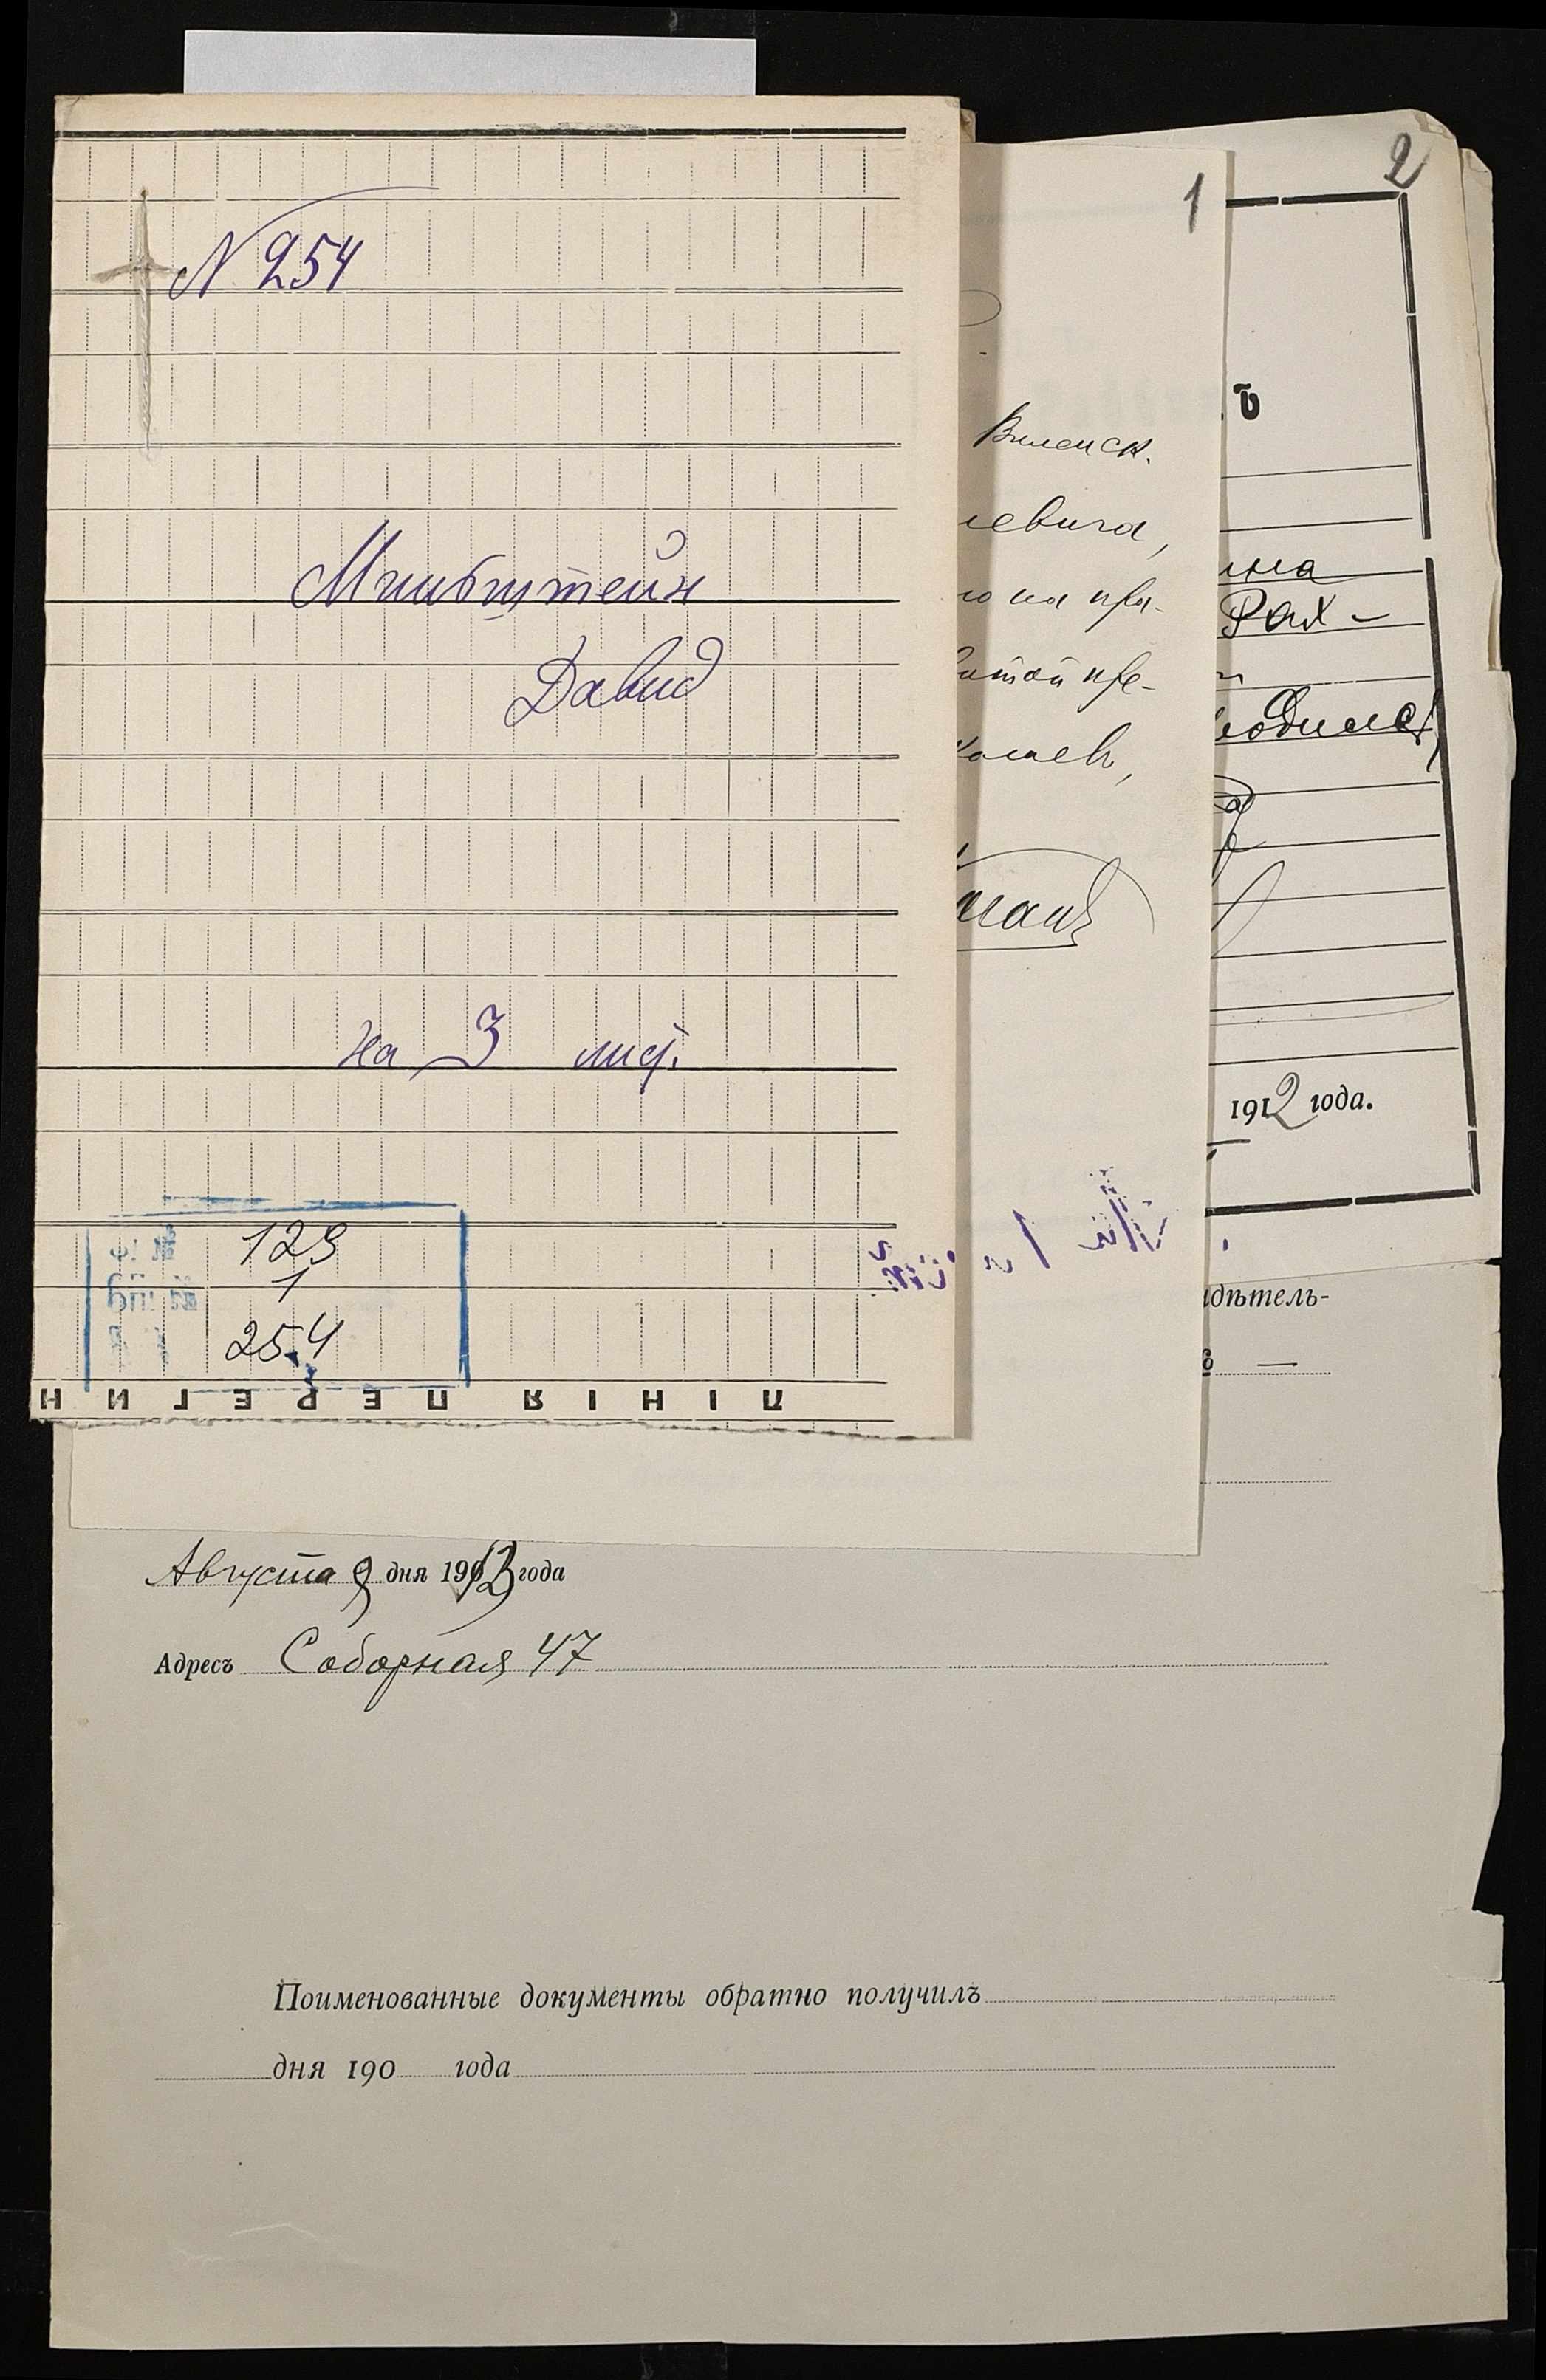 N 254
Мильштейн
Давид
на 3 лис.
Ф. №
129
Оп. №
1
254
НИГЕРЕП ЯІНІЛ
1
Виленск.
левича,
но на пра-
витой пре-
1
2
ъ
ина
Рах-
родился
1912 года.
идѣтель-
Августа 9 дня 1913 года
Адресъ Соборная 47
Поименованные документы обратно получилъ
дня 190 года